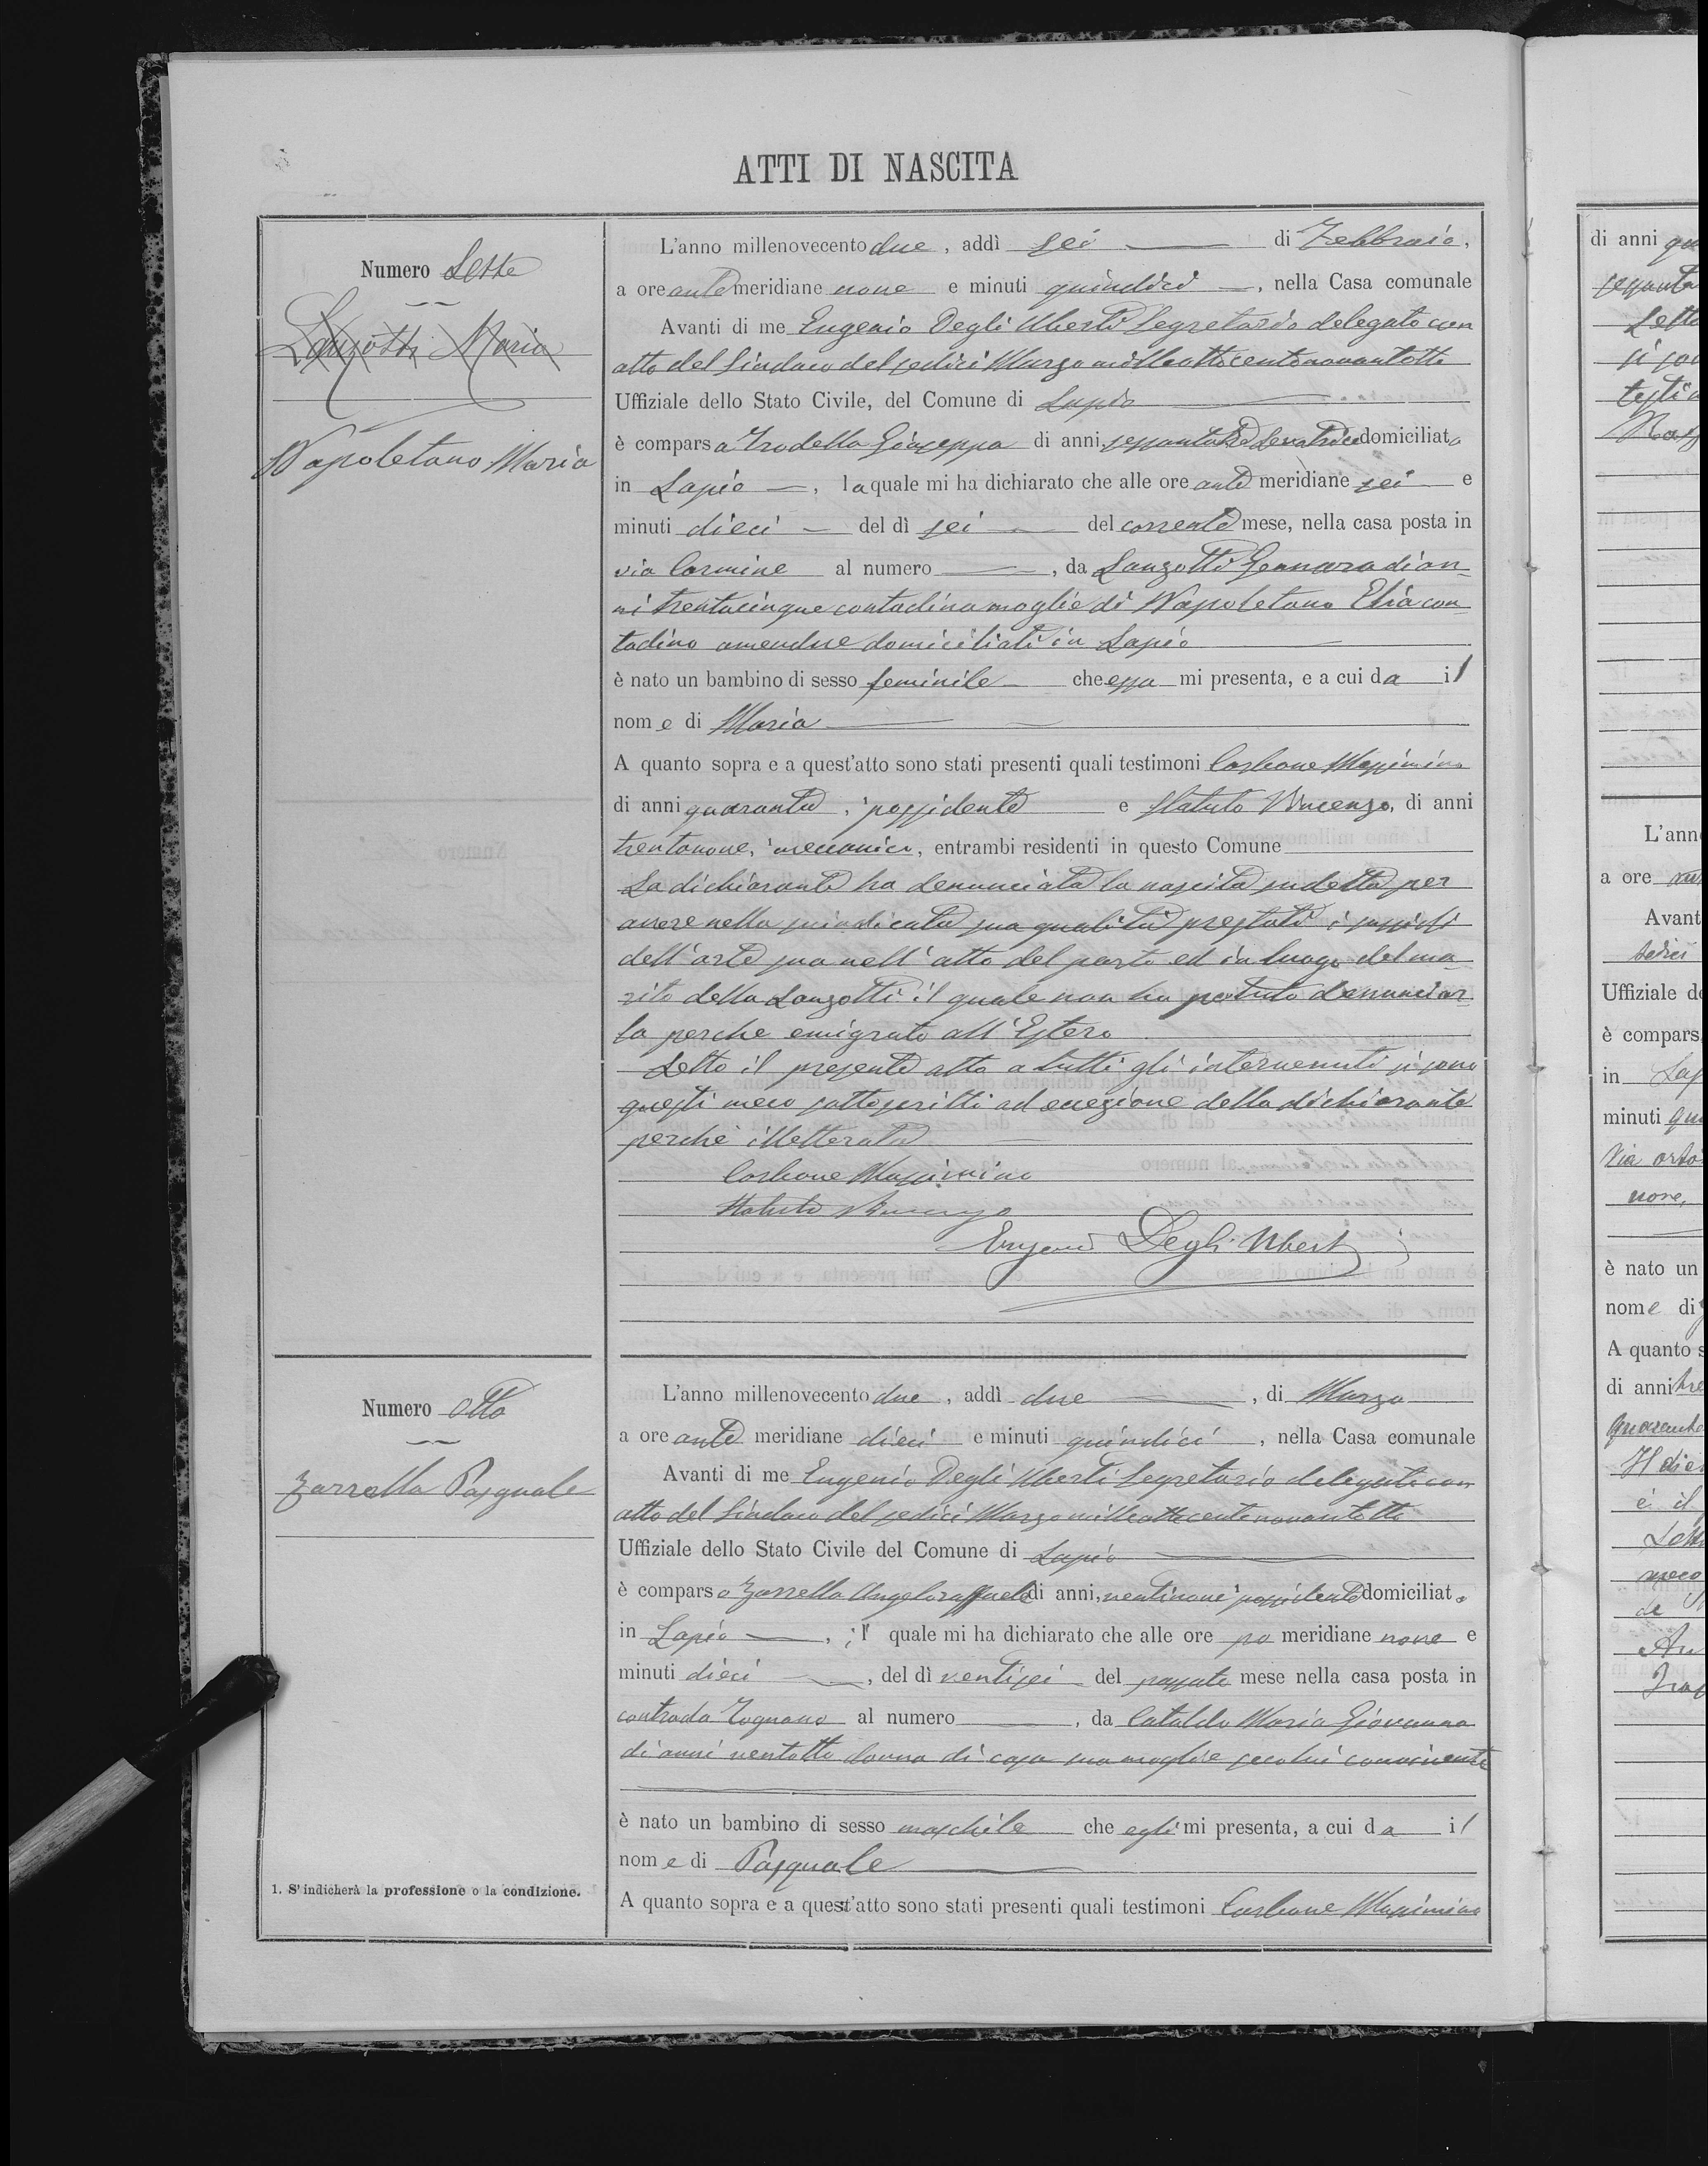 ATTI DI NASCITA
Numero Sette
Lanzotti Maria
Napoletano Maria
L'anno millenovecento due, addì sei di Febbraio,
a ore antemeridiane nove e minuti quindici, nella Casa comunale
Avanti di me Eugenio Degli Uberti Segretario delegato con
atto del Sindaco del sedici Marzo milleottocentonovantotto
Uffiziale dello Stato Civile, del Comune di Lapio
è comparsa Trodella Giuseppa di anni, sessantatre Levatrice domiciliata
in Lapio, la quale mi ha dichiarato che alle ore ante meridiane sei e
minuti dieci del dì sei del corrente mese, nella casa posta in
via Carmine al numero, da Lanzotti Gennara di an-
ni trentacinque contadina moglie di Napoletano Elia con-
tadino amendue domiciliati in Lapio
è nato un bambino di sesso feminile che essa mi presenta, e a cui da il
nome di Maria
A quanto sopra e a quest'atto sono stati presenti quali testimoni Carbone Massimino
di anni quaranta, possidente e Statuto Vincenzo, di anni
trentanove, meccanico, entrambi residenti in questo Comune
La dichiarante ha denunciata la nascita sudetta per
avere nella suindicata sua qualità prestati i sussidi
dell'arte sua nell'atto del parto ed in luogo del ma-
rito della Lanzotti il quale non ha potuto denunciar-
la perche emigrato all'Estero
Letto il presente atto a tutti gli intervenuti si sono
questi meco sottoscritti ad eccezione della dichiarante
perchè illetterata
Carbone Massimino
Statuto Vincenzo
Eugenio Degli Uberti
Numero Otto
Zarrella Pasquale
L'anno millenovecento due, addì due, di Marzo
a ore ante meridiane dieci e minuti quindici, nella Casa comunale
Avanti di me Eugenio Degli Uberti Segretario delegato con
atto del Sindaco del sedici Marzo milleottocentonovantotto
Uffiziale dello Stato Civile del Comune di Lapio
è comparso Zarrella Angeloraffaele di anni, ventinove possidente domiciliato
in Lapio, il quale mi ha dichiarato che alle ore po meridiane nove e
minuti dieci, del dì ventisei del passato mese nella casa posta in
contrada Tognano al numero, da Cataldo Maria Giovanna
di anni ventotto donna di casa sua moglie secolui convivente
è nato un bambino di sesso maschile che egli mi presenta, a cui da il
nome di Pasquale
A quanto sopra e a quest'atto sono stati presenti quali testimoni Carbone Massimino
1. S'indicherà la professione o la condizione.
di anni
L'ann
a ore
Avant
sedici
Uffiziale d
è compars
in Lap
minuti
Via
nove,
è nato un
nome di
A quanto s
di anni tre
quarante
è il
meco